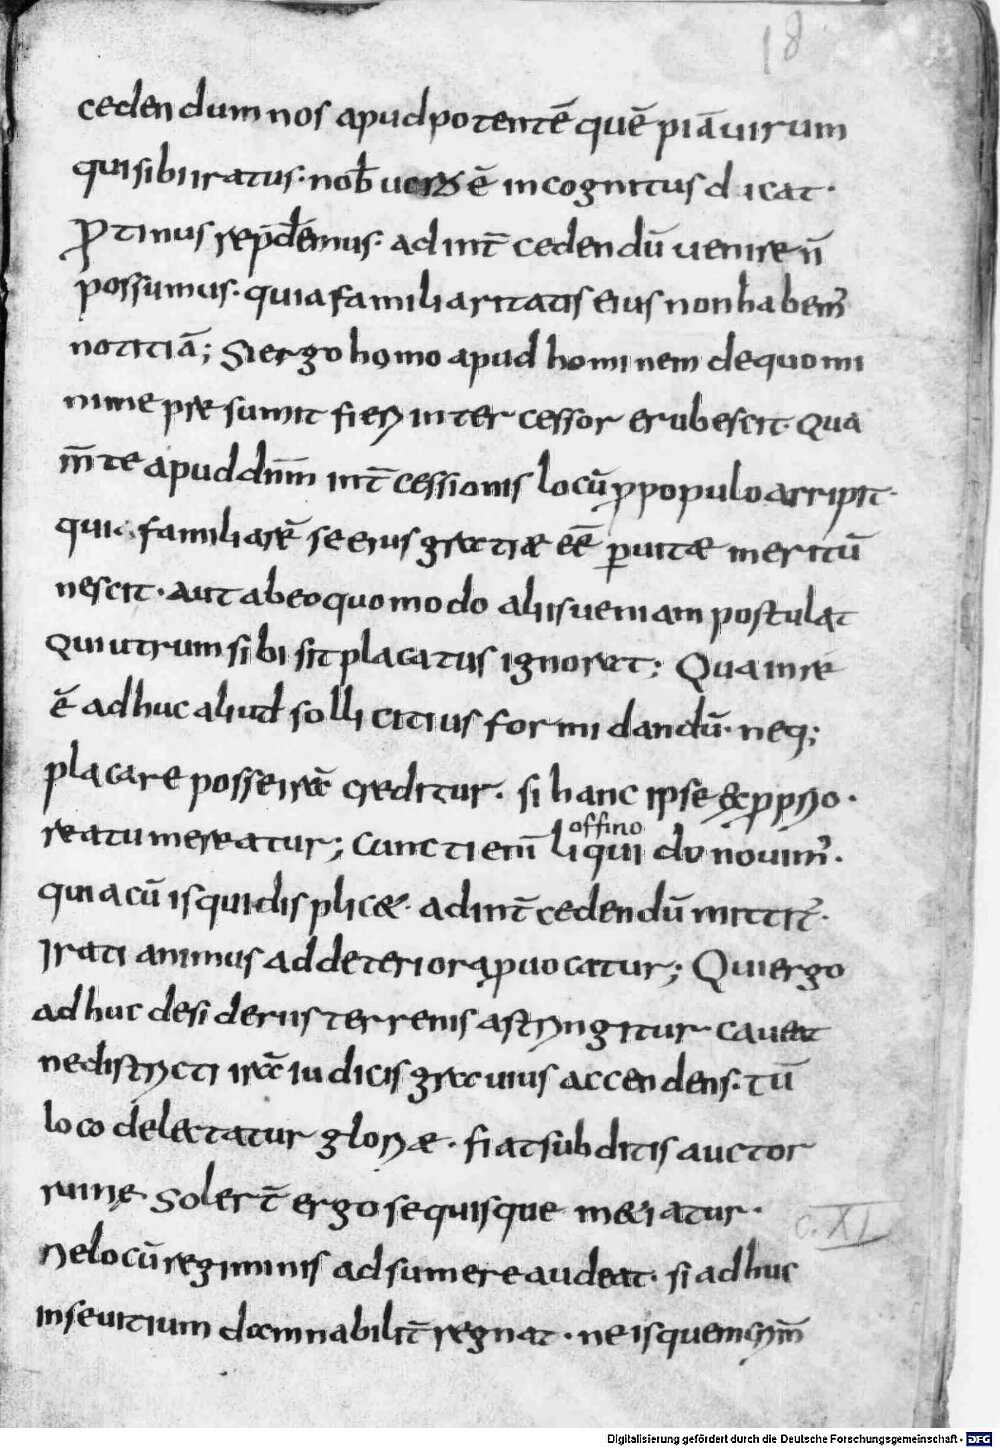 18
cedendum nos apud potentē quē piā uirum
qui sibi iratus· nob̄ uero ē incognitus ducat·
ꝓtinus rep̄dem̄us· ad int̄cedendū uenire n̄
possumus· quia familiaritatis eius non habem᾽
notitiā; Si ergo homo apud hominem de quo mi
nime presumit fieri intercessor erubescit· qua
m̄te apud dn̄m int̄cessionis locū ꝓ populo arripit·
quia familiarē se eius gratiæ eē̄ ꝑ uitæ meritū
nescit· aut ab eo quomodo aliis ueniam postulat
qui utrum sibi sit placatus ignorat; Qua in re
ē adhuc aliud sollicitius formidandū· neq;
placare posse irā creditur· si hanc ipse & ꝓprio·
reatu mereatur; Cuncti eni̅ liqui do nouim᾽·
offino
quia cū is qui displic&· ad int̄cedendū mittit᾽·
Irati animus ad deteriora ꝓuocatur; Qui ergo
adhuc desideriis terrenis astringitur caueat
ne districti irā iudicis grauius accendens· tū
loco delectatur gloriæ· fiat subditis auctor
ruine· Solert̄ ergo se quisque m&iatur·
c. XI
Ne locū regiminis adsumere audeat· si adhuc
in se uitium damnabilit̄ regnat· ne is quem crim̄
Digitalisierung gefördert durch die Deutsche Forschungsgemeinschaft - DFG